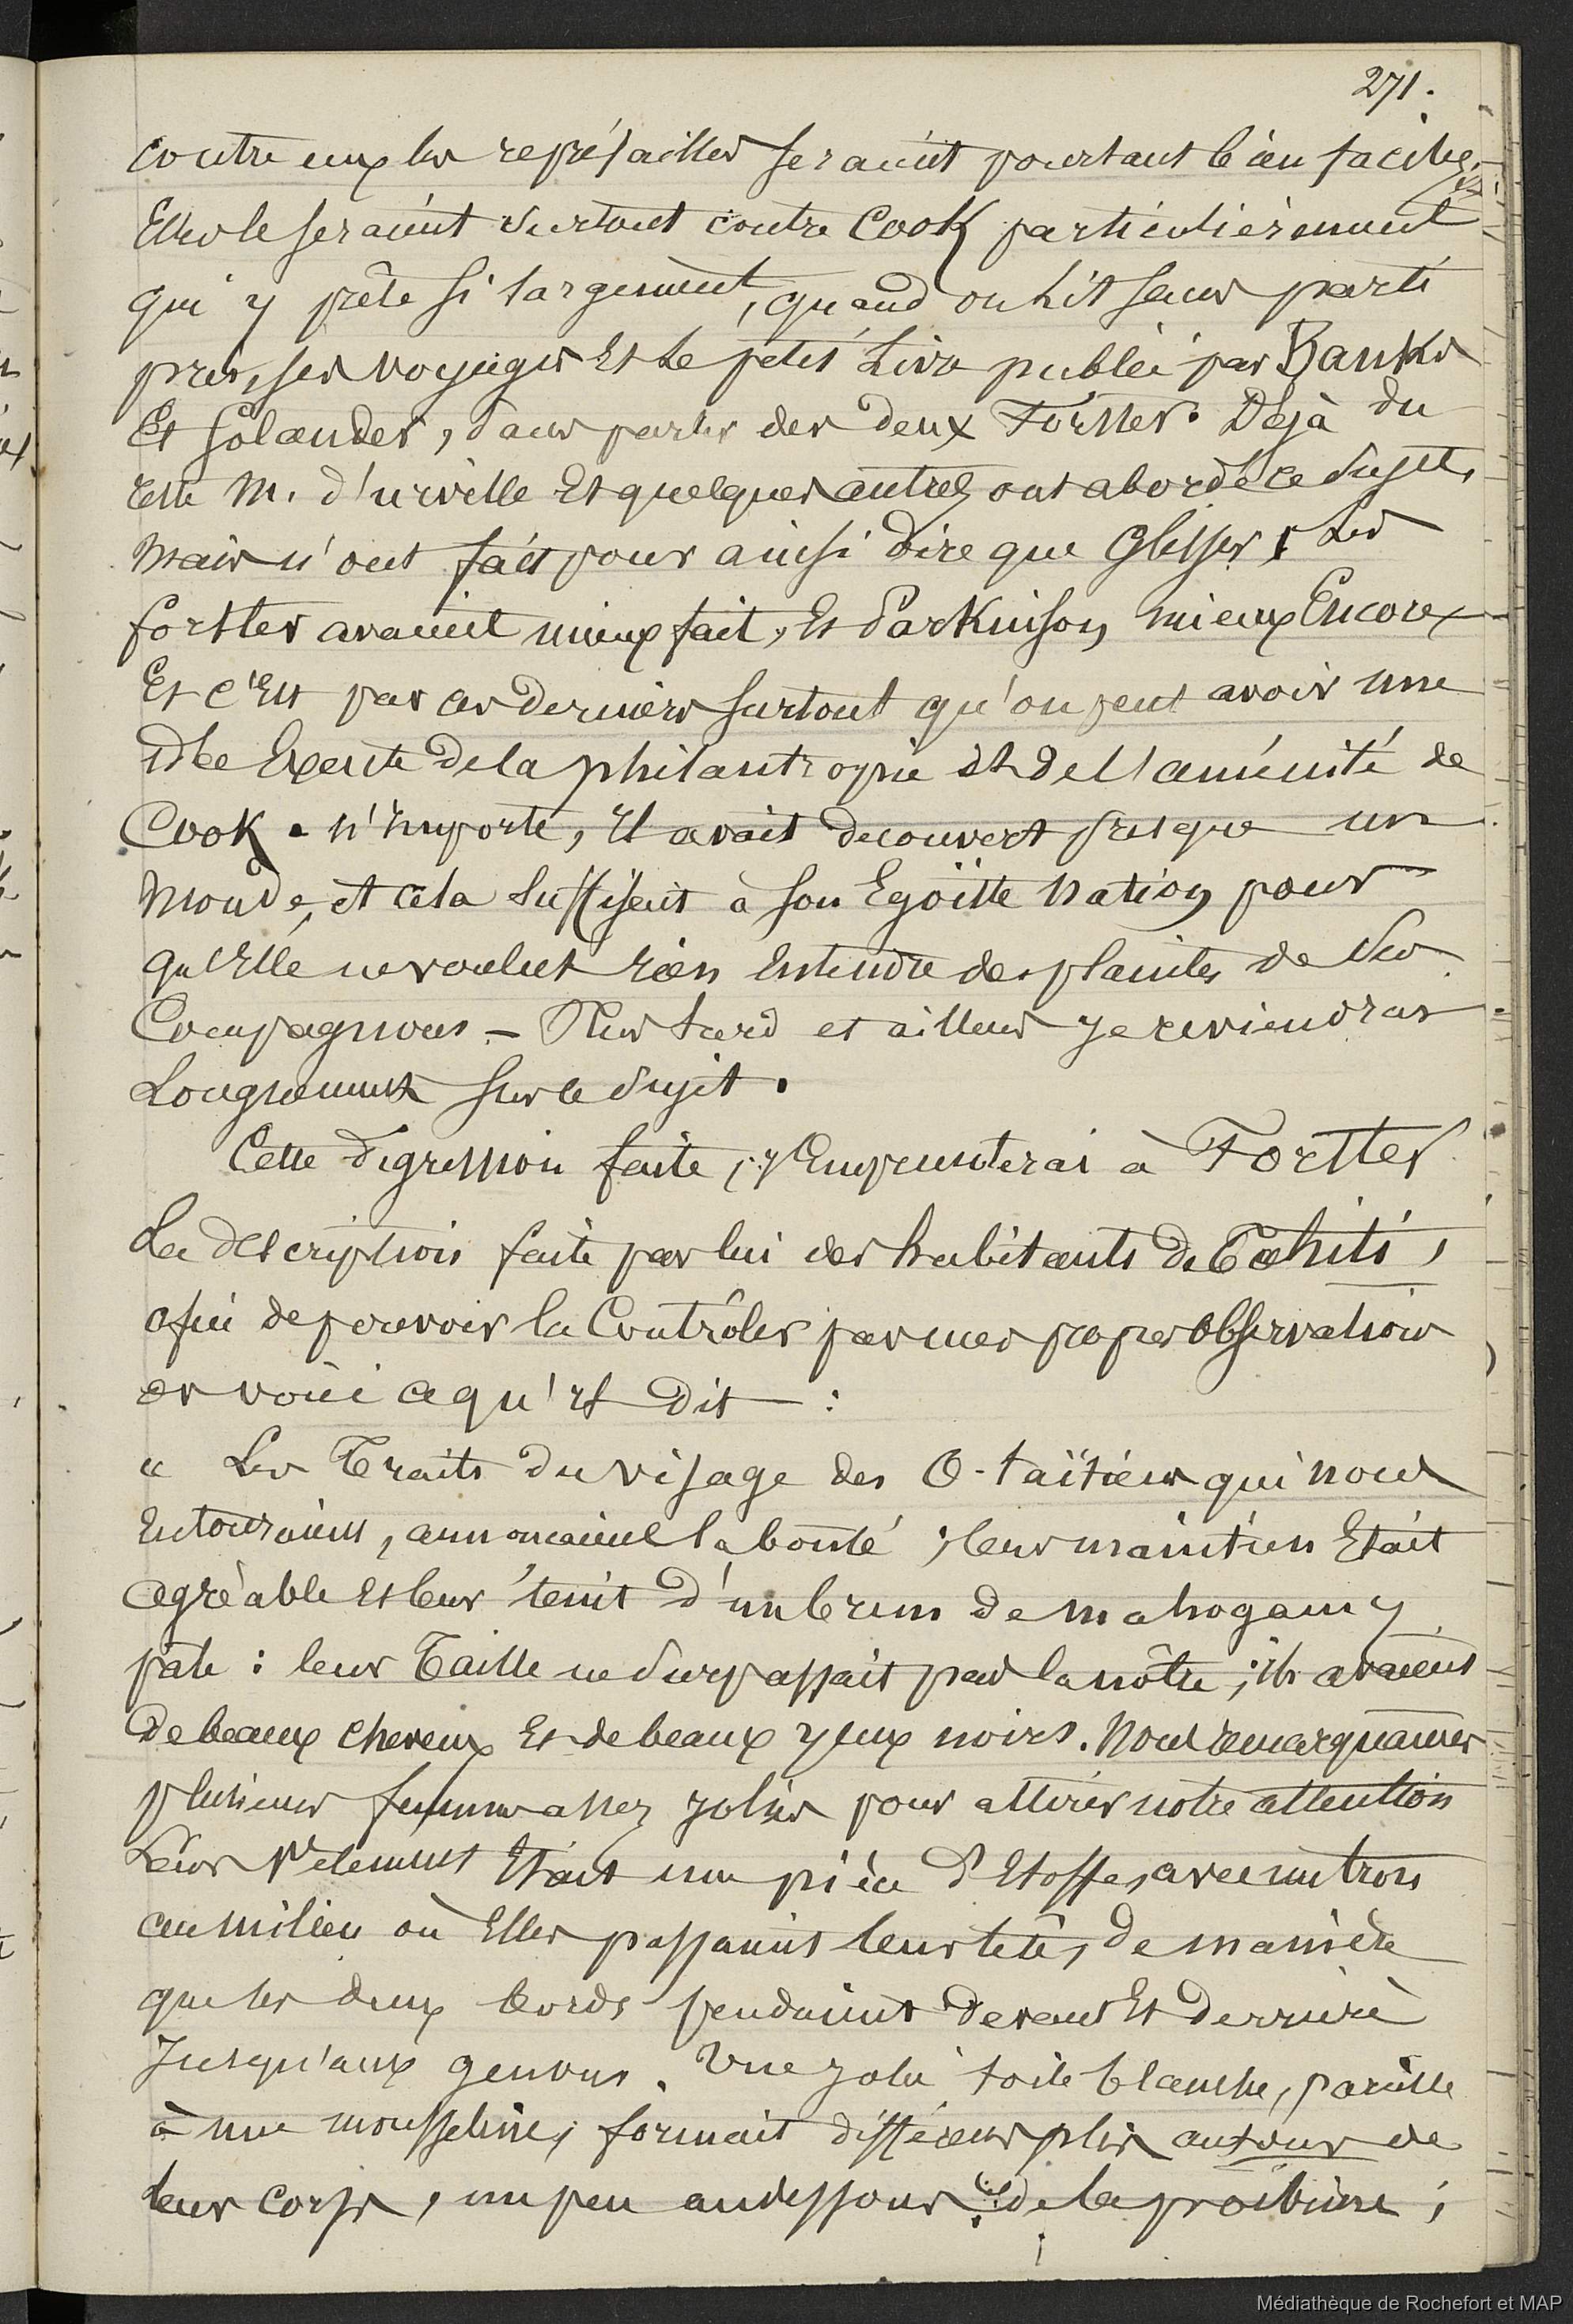 271.
contre eux les représailles seraient pourtant bien faciles,
Elles le seraient surtout contre Cook particulièrement
qui y prête si largement, quand on lit sans parti
pris, ses voyages Et le petit Livre publié par Banks
Et Solander, sans parler des deux Forster. Déjà du
reste M. d'urville Et quelques autres ont abordé ce sujet,
Mais n'ont fait pour ainsi dire que Glisser, Les
forster avaient mieux fait, Et Parkinson mieux Encore
Et c'Est par ces derniers surtout qu'on peut avoir une
idée Exacte de la philantropie Et de l'aménité de
Cook. n'importe, Il avait decouvert presque un
Monde, et cela suffisait à son Egoïste Nation pour
qu'Elle ne voulut rien Entendre des plaintes de Ses
Compagnons – Plus tard et ailleurs Je reviendrai
Longuement sur ce sujet.
Cette digression faite, j'Emprunterai à Forster
La description faite par lui des habitants de Tahiti,
afin de pouvoir la Contrôler par mes propres observations
or voici ce qu'il dit :
" Les Traits du visage des O-taïtiens qui nous
Entouraient, annoncaient la bonté ; leur maintien Etait
agréable Et leur teint d'un brun de mahogany
pâle : leur Taille ne surpassait pas la nôtre ; ils avaient
De beaux cheveux Et de beaux yeux noirs. Nous remarquames
plusieurs femmes assez jolies pour attirer notre attention
Leur Vetement Etait une pièce d'Etoffe, avec un trou
au milieu où Elles passaient leur tête, de manière
que les deux bords pendaient devant Et derrière
Jusqu'aux genoux. Une jolie toile blanche, pareille
à une mousseline, formait différens plis autour de
leur corps, un peu audessous de la poitrine ;
Médiathèque de Rochefort et MAP